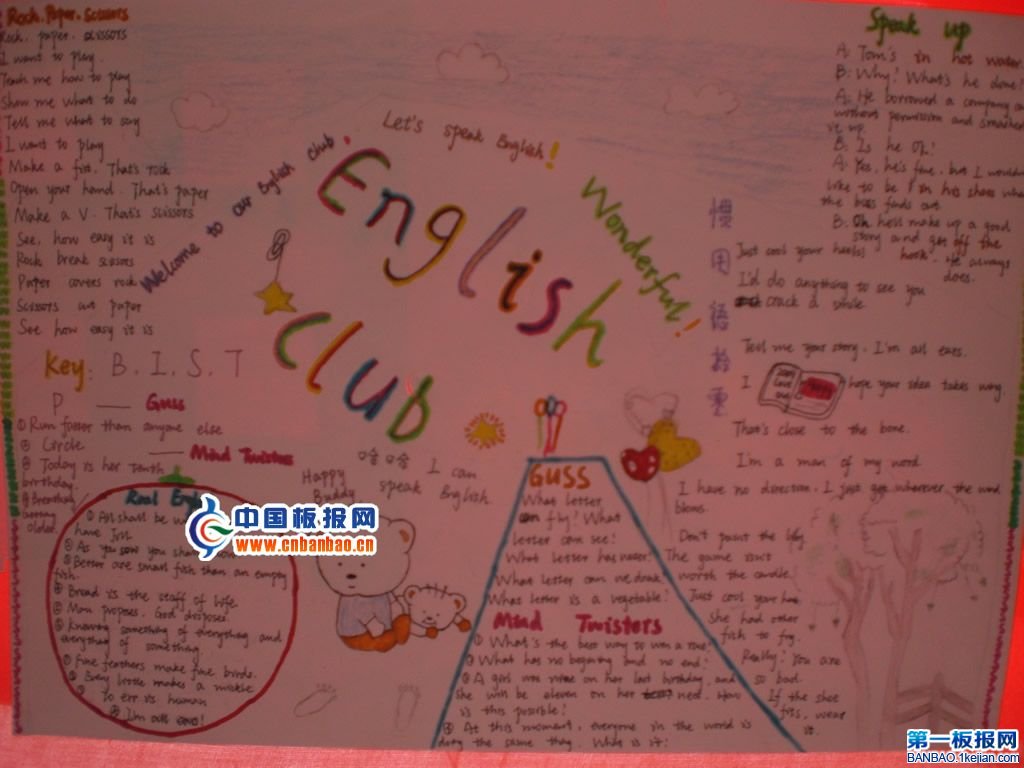 Rock. Paper. Scissors
Rock. paper. scissors
I want to play.
Teach me how to play
Show me what to do
Tell me what to say
I want to play
Make a fist. That's rock
Open your hand. That's paper
Make a V. That's scissors
See, how easy it is
Rock break scissors
Paper covers rock
Scissors cut paper
See how easy it is
Key: B. I. S. T
P — Guss
① Run faster than anyone else
② Circle — Mind Twister
③ Today is her tenth
birthday.
④ Breathing
older
Real
① All shall be
have Jill
② As you sow you
③ Better are small fish than an empty
fish.
④ Bread is the staff of life.
⑤ Man proposes. God disposes.
⑥ Knowing something of everything and
everything of something.
⑦ Fine feathers make fine birds.
⑧ Every little makes a mickle
⑨ To err is human
⑩ I'm all ears!
Welcome to our English club.
Let's speak English!
English
Club
Wonderful!
Happy
Buddy
哈哈 I can
speak English.
中国板报网
www.cnbanbao.cn
GUSS
What letter
can fly? What
letter can see?
What letter has water?
What letter can we drink?
What letter is a vegetable?
Mind Twisters
① What's the best way to win a race?
② What has no begining and no end?
③ A girl was nine on her last birthday, and
she will be eleven on her next. How
is this possible?
④ At this moment, everyone in the world is
doing the same thing. What is it?
Speak up
A: Tom's in hot water.
B: Why? What's he done?
A: He borrowed a company
without permission and smashed
it up.
B: Is he Ok?
A: Yes, he's fine, but I wouldn
like to be in his shoes when
the boss finds out.
B: Oh he'll make up a good
story and get off the
hook. He always
does.
惯用语拾零
Just cool your heels
I'd do anything to see you
crack a smile
Tell me your story. I'm all ears.
I hope your idea takes wing.
That's close to the bone.
I'm a man of my word.
I have no direction. I just go wherever the wind
blows.
Don't paint the lily.
The game isn't
worth the candle.
Just cool your
She had other
fish to fry.
Really? You are
so bad.
If the shoe
fits, wear
it.
第一板报网
BANBAO.1kejian.com